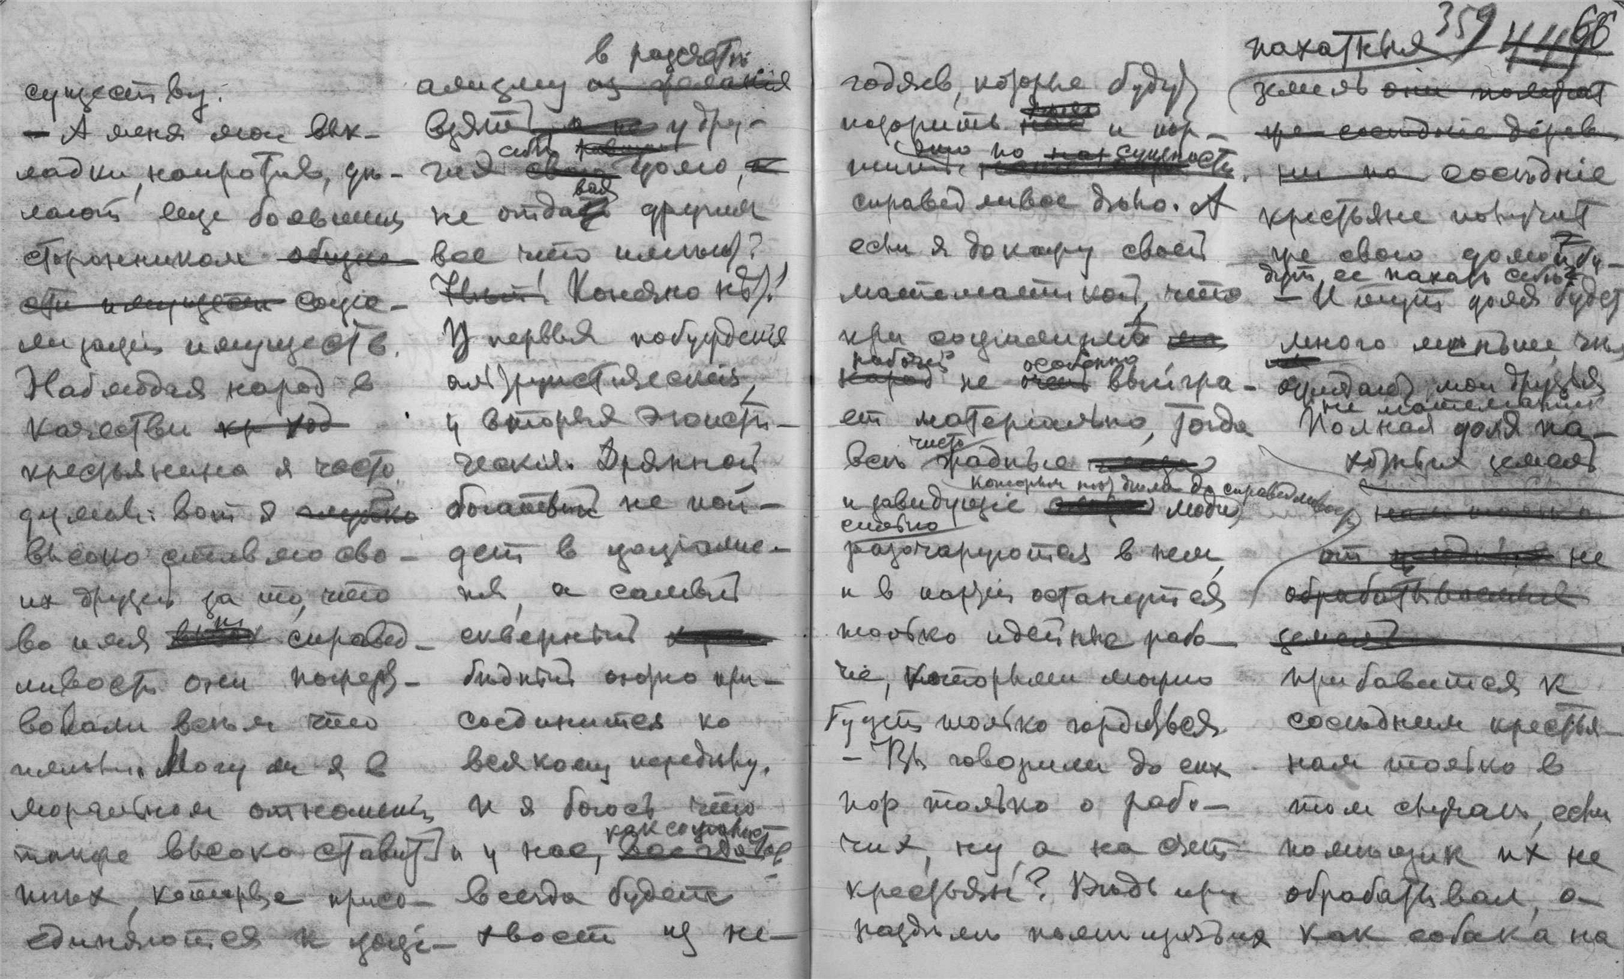 существу.
— А меня мои вык-
ладки, напротив, ды-
лают еще большим
сторонником
социа-
лизации имуществ.
Наблюдая народ в
качестве
крестьянина я часто
думал: вот я
высоко ставлю сво-
их друзей за то, что
во имя справед-
ливости они пожерт-
вовали всем что
имели. Могу ли я в
моральном отношении
также высоко ставить
иных, которые присо-
единяются к соци-
ализму в разсчете
взять у дру-
гих себе долю,
не отдавая другим
все что имеют?
Конечно нет!
У первых побуждения
альтруистическия,
у вторых эгоисти-
ческия. Дрянной
богатый не пой-
дет в социалис-
ты, а самый
скверный
бедный охотно при-
соединится ко
всякому переделу.
И я боюсь что
и у нас, как социалист
всегда будет
хвост из не-
годяев, которые будут
позорить и пор-
тить это по сущности
справедливое дело. А
если я докажу своей
математикой, что
при социализме
рабочий не особенно выигра-
ет материально, тогда
все чисто жадные
и завидующие люди, которым нет дела до справедливости,
сильно
разочаруются в нем,
и в партии останутся
только идейные рабо-
чие, которыми можно
будет только гордиться.
— Вы говорили до сих
пор только о рабо-
чих, ну, а на счет
крестьян? Ведь при
раздыле помещичьих
359 66
пахатных
земель
соседние
крестьяне получат
же свою долю и бу-
дут ее пахать себе?
— И тут доля будет
много меньше, чем
ожидают мои друзья
не математики
Полная доля па-
хатных земель
не
прибавится к
соседним крестья-
нам только в
том случае, если
помещик их не
обрабатывал, а
как собака на